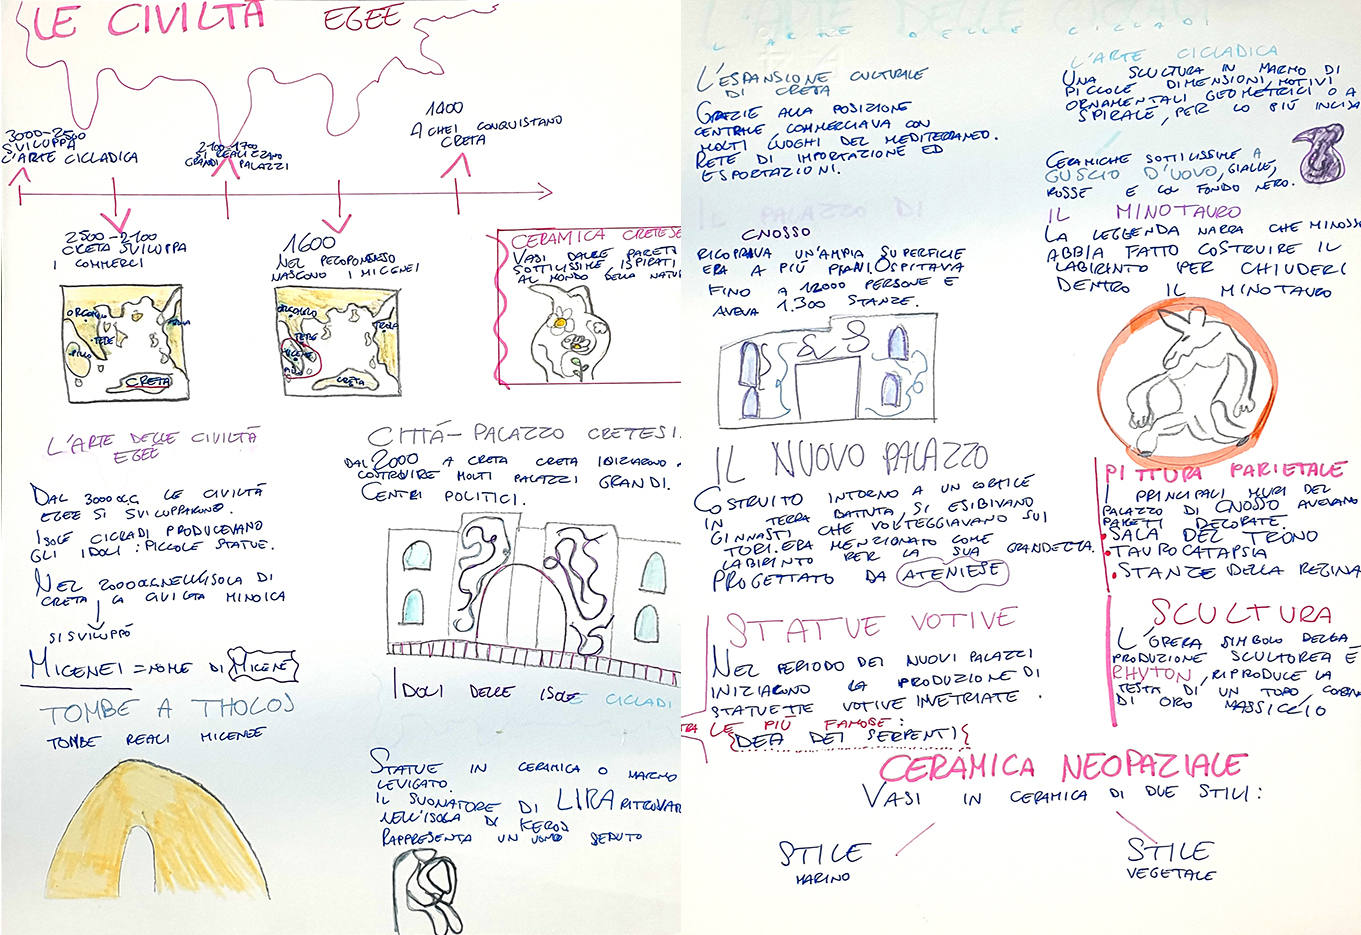 LE CIVILTÀ EGEE
3000-2500
SVILUPPA
L'ARTE CICLADICA
2100-1700
SI REALIZZANO
GRANDI PALAZZI
1400
ACHEI CONQUISTANO
CRETA
2500-2100
CRETA SVILUPPA
I COMMERCI
1600
NEL PELOPONNESO
NASCONO I MICENEI
CERAMICA CRETESE
VASI DALLE PARETI
SOTTILISSIME ISPIRATI
AL MONDO DELLA NATU
TEBE
PILO
CRETA
TEBE
CRETA
L'ARTE DELLE CIVILTÀ
EGEE
DAL 3000 a.C. LE CIVILTÀ
EGEE SI SVILUPPARONO.
ISOLE CICLADI PRODUCEVANO
GLI IDOLI: PICCOLE STATUE.
NEL 2000 a.C NELL'ISOLA DI
CRETA LA CIVILTÀ MINOICA
SI SVILUPPÒ
MICENEI = NOME DI MICENE
TOMBE A THOLOS
TOMBE REALI MICENEE
CITTÁ-PALAZZO CRETESI.
DAL 2000 A CRETA CRETA INIZIARONO A
COSTRUIRE MOLTI PALAZZI GRANDI.
CENTRI POLITICI.
IDOLI DELLE ISOLE CICLADI
STATUE IN CERAMICA O MARMO
LEVIGATO.
IL SUONATORE DI LIRA RITROVAT
NELL'ISOLA DI KEROS
RAPPRESENTA UN UOMO SEDUTO
L'ARTE DELLE CICLADI
L'ESPANSIONE CULTURALE
DI CRETA
GRAZIE ALLA POSIZIONE
CENTRALE, COMMERCIAVA CON
MOLTI LUOGHI DEL MEDITERRANEO.
RETE DI IMPORTAZIONE ED
ESPORTAZIONI.
IL PALAZZO DI
CNOSSO
RICOPRIVA UN'AMPIA SUPERFICIE
ERA A PIÙ PIANI. OSPITAVA
FINO A 12000 PERSONE E
AVEVA 1.300 STANZE.
IL NUOVO PALAZZO
COSTRUITO INTORNO A UN CORTILE
IN TERRA BATTUTA, SI ESIBIVANO
GINNASTI CHE VOLTEGGIAVANO SUI
TORI. ERA MENZIONATO COME
LABIRINTO PER LA SUA GRANDEZZA.
PROGETTATO DA ATENIESE
STATUE VOTIVE
NEL PERIODO DEI NUOVI PALAZZI
INIZIARONO LA PRODUZIONE DI
STATUETTE VOTIVE INVETRIATE.
TRA LE PIÙ FAMOSE:
{DEA DEI SERPENTI{
L'ARTE CICLADICA
UNA SCULTURA IN MARMO DI
PICCOLE DIMENSIONI, MOTIVI
ORNAMENTALI GEOMETRICI O A
SPIRALE, PER LO PIÙ INCISA
CERAMICHE SOTTILISSIME A
GUSCIO D'UOVO, GIALLE,
ROSSE E COL FONDO NERO.
IL MINOTAURO
LA LEGGENDA NARRA CHE MINOSSE
ABBIA FATTO COSTRUIRE IL
LABIRINTO PER CHIUDERCI
DENTRO IL MINOTAURO
PITTURA PARIETALE
I PRINCIPALI MURI DEL
PALAZZO DI CNOSSO AVEVANO
PARETI DECORATE.
• SALA DEL TRONO
• TAUROCATAPSIA
• STANZE DELLA REGINA
SCULTURA
L'OPERA SIMBOLO DELLA
PRODUZIONE SCULTOREA È
RHYTON, RIPRODUCE LA
TESTA DI UN TOPO, CORNA
DI ORO MASSICCIO
CERAMICA NEOPAZIALE
VASI IN CERAMICA DI DUE STILI:
STILE
MARINO
STILE
VEGETALE